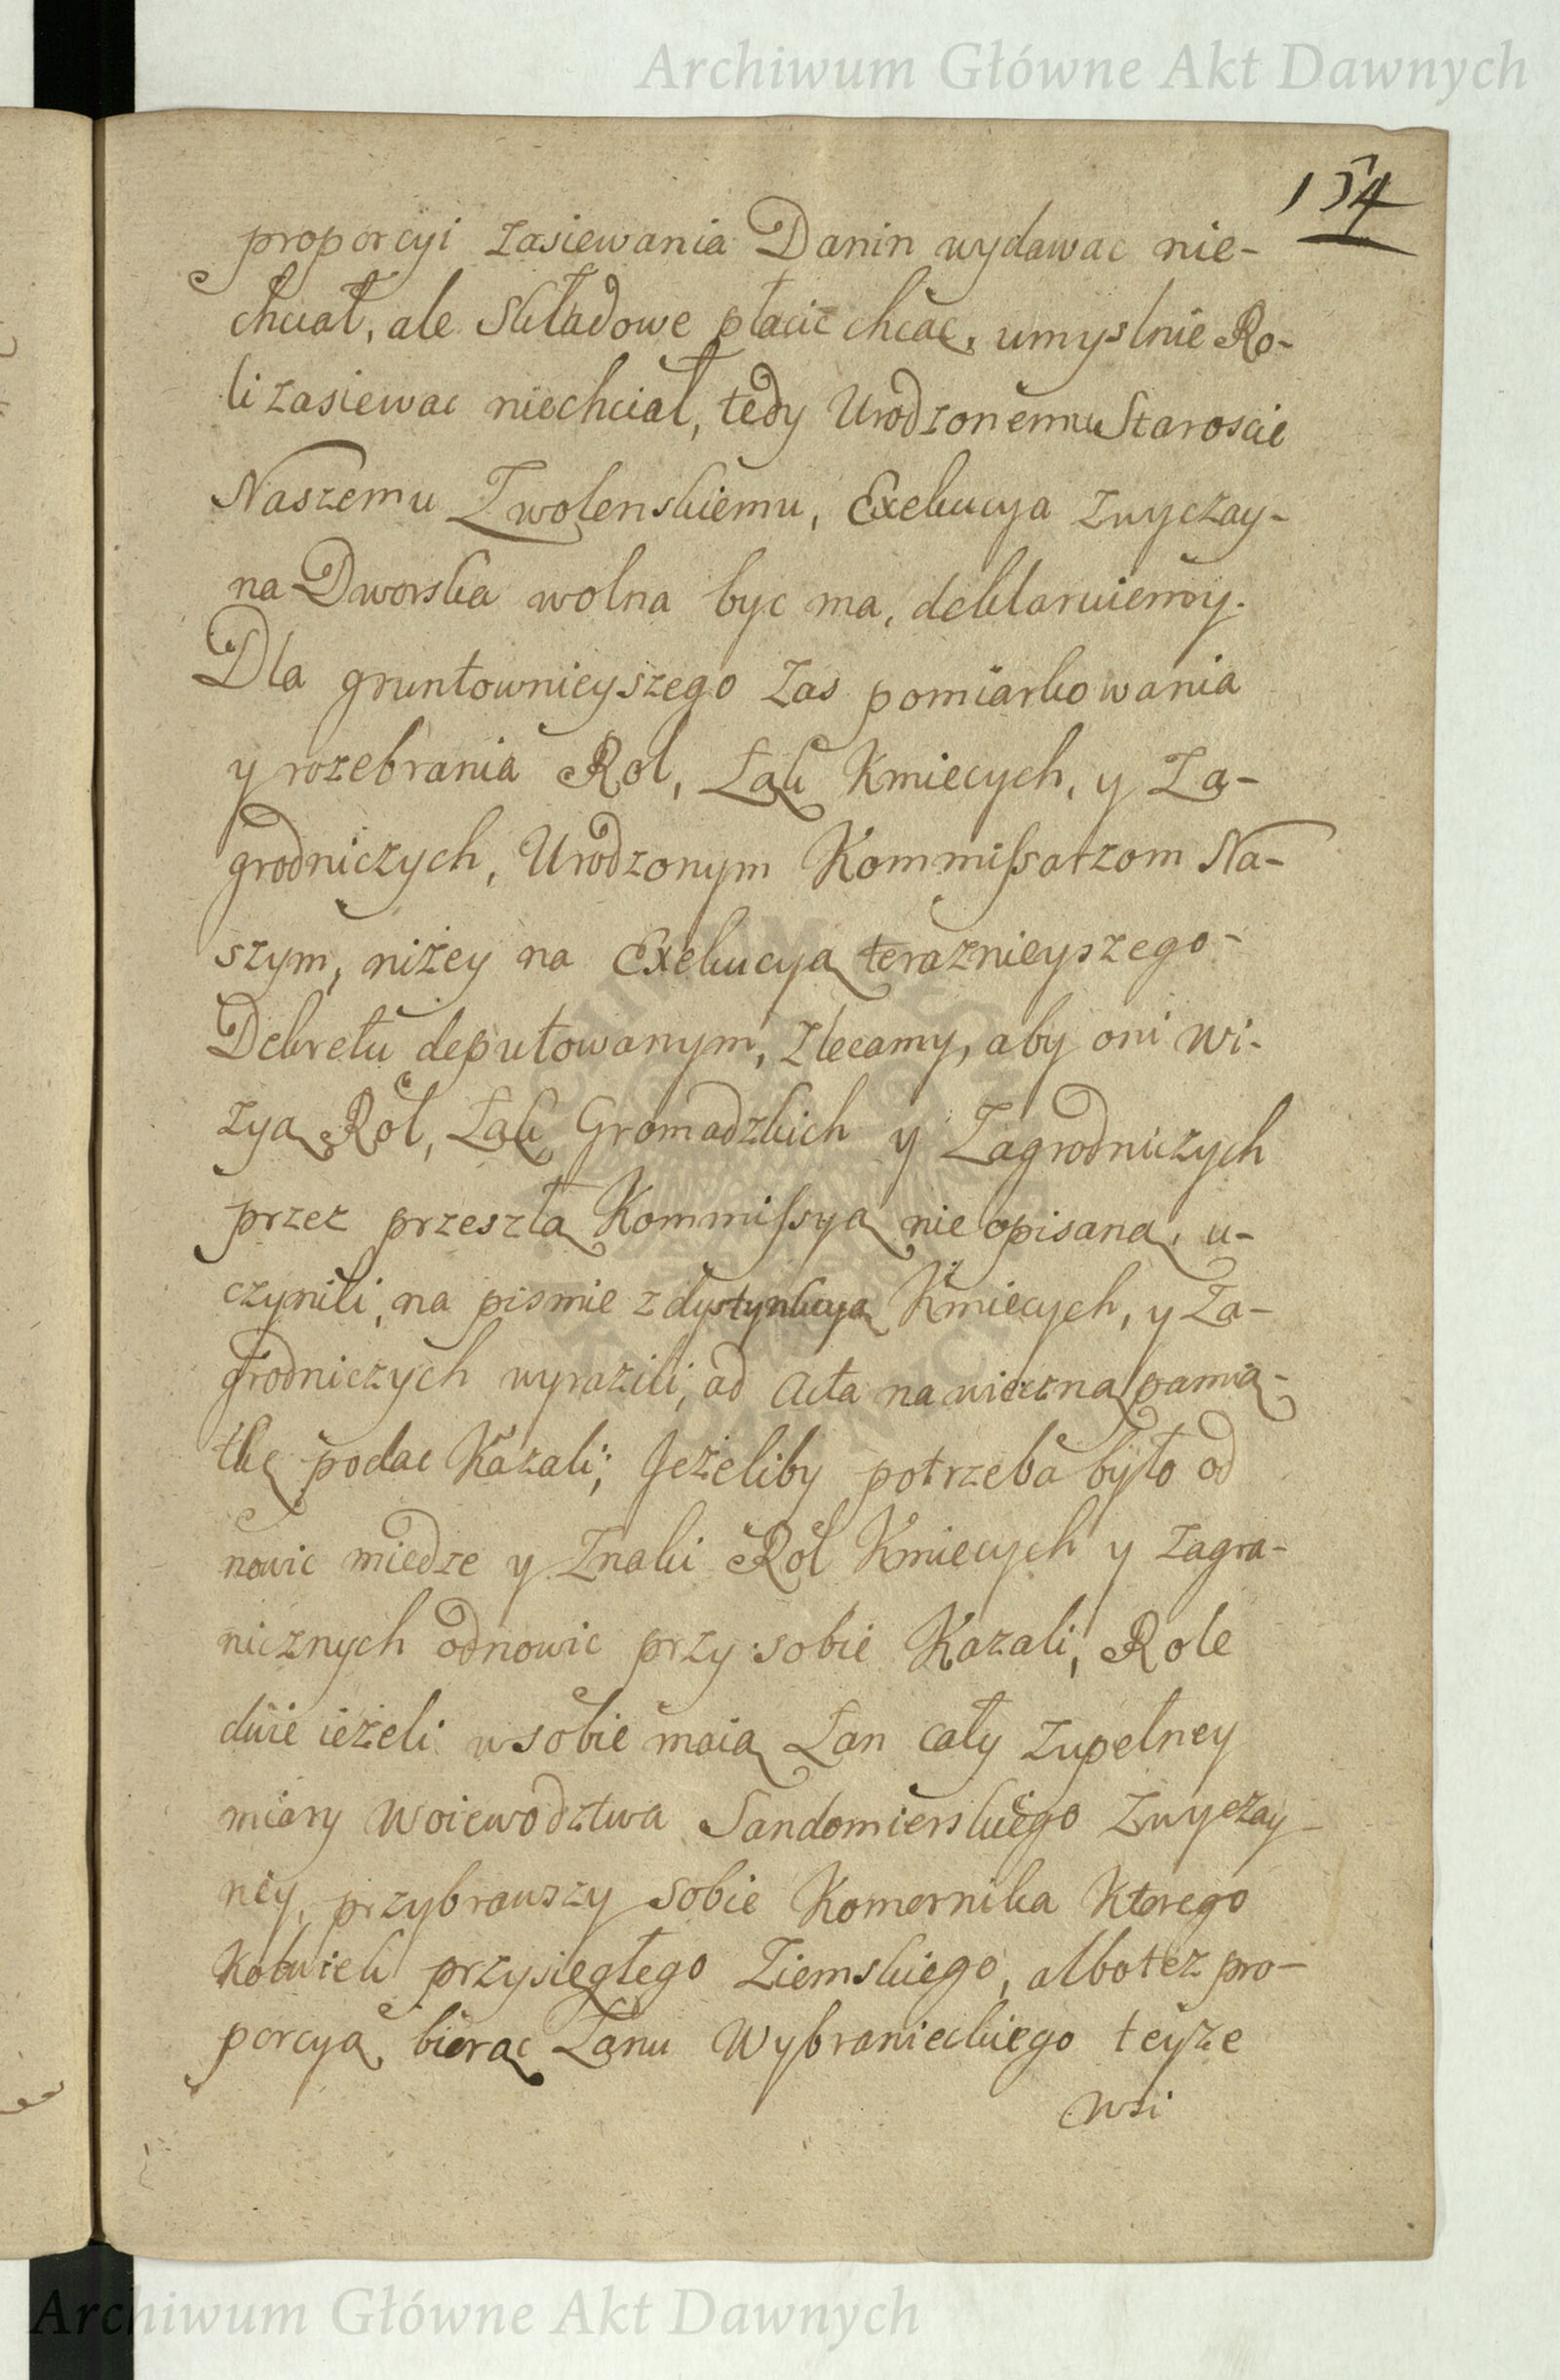 Archiwum Główne Akt Dawnych
154
proporcyi zasiewania Danin wydawac nie-
chciał, ale Składowe płacic chcąc, umyslnie Ro-
li zasiewac niechciał, tedy Urodzonemu Staroscie
Naszemu Zwolenskiemu, Exekucya zwyczay-
na Dworska wolna byc ma, deklaruiemy.
Dla gruntownieyszego zas pomiarkowania
y rozebrania Rol, Łąk Kmiecych, y Za-
grodniczych, Urodzonym Kommissarzom Na-
szym, niżey na Exekucyą teraznieyszego
Dekretu deputowanym, zlecamy, aby oni wi-
zyą Rol, Łąk Gromadzkich y Zagrodniczych
przez przeszłą Kommissyą nie opisaną, u-
czynili, na pismie z dystynkcyą Kmiecych, y Za-
grodniczych wyrazili, ad Acta na wieczną pamią-
tkę podac Kazali; Jeżeliby potrzeba było od
nowic miedze y Znaki Rol Kmiecych y zagra-
nicznych odnowic przy sobie Kazali, Role
dwie ieżeli w sobie maią Łan cały zupełney
miary Woiewodztwa Sandomierskiego Zwyczay-
ney, przybrawszy sobie Komornika Ktorego
Kolwiek przysięgłego Ziemskiego, albo tez pro-
porcyą biorąc Łanu Wybranieckiego teyże
wsi
Archiwum Główne Akt Dawnych